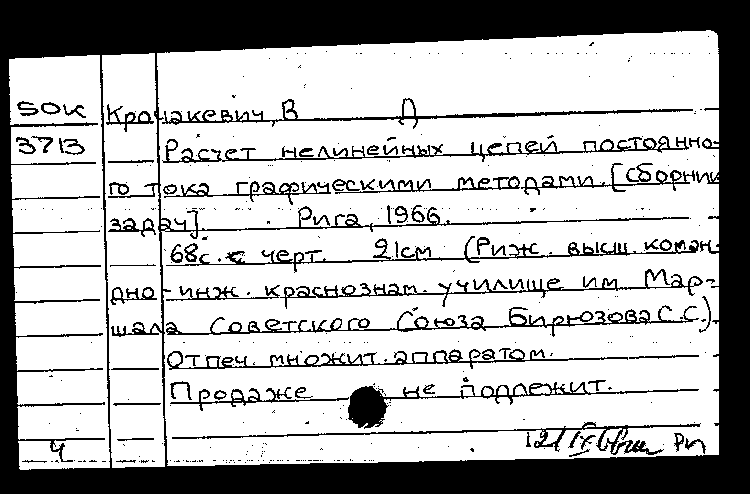 50к Крачакевич, В Д
3713 Расчет нелинейных цепей постоянно-
го тока графическими методами. [Сборник
задач]. Рига, 1966.
68с. с черт. 21см (Риж. высш. коман-
дно-инж. краснознам. училище им Мар-
шала Советского Союза Бирюзова С.С.).
Отпеч. множит. аппаратом.
Продаже не подлежит.
4 Рп